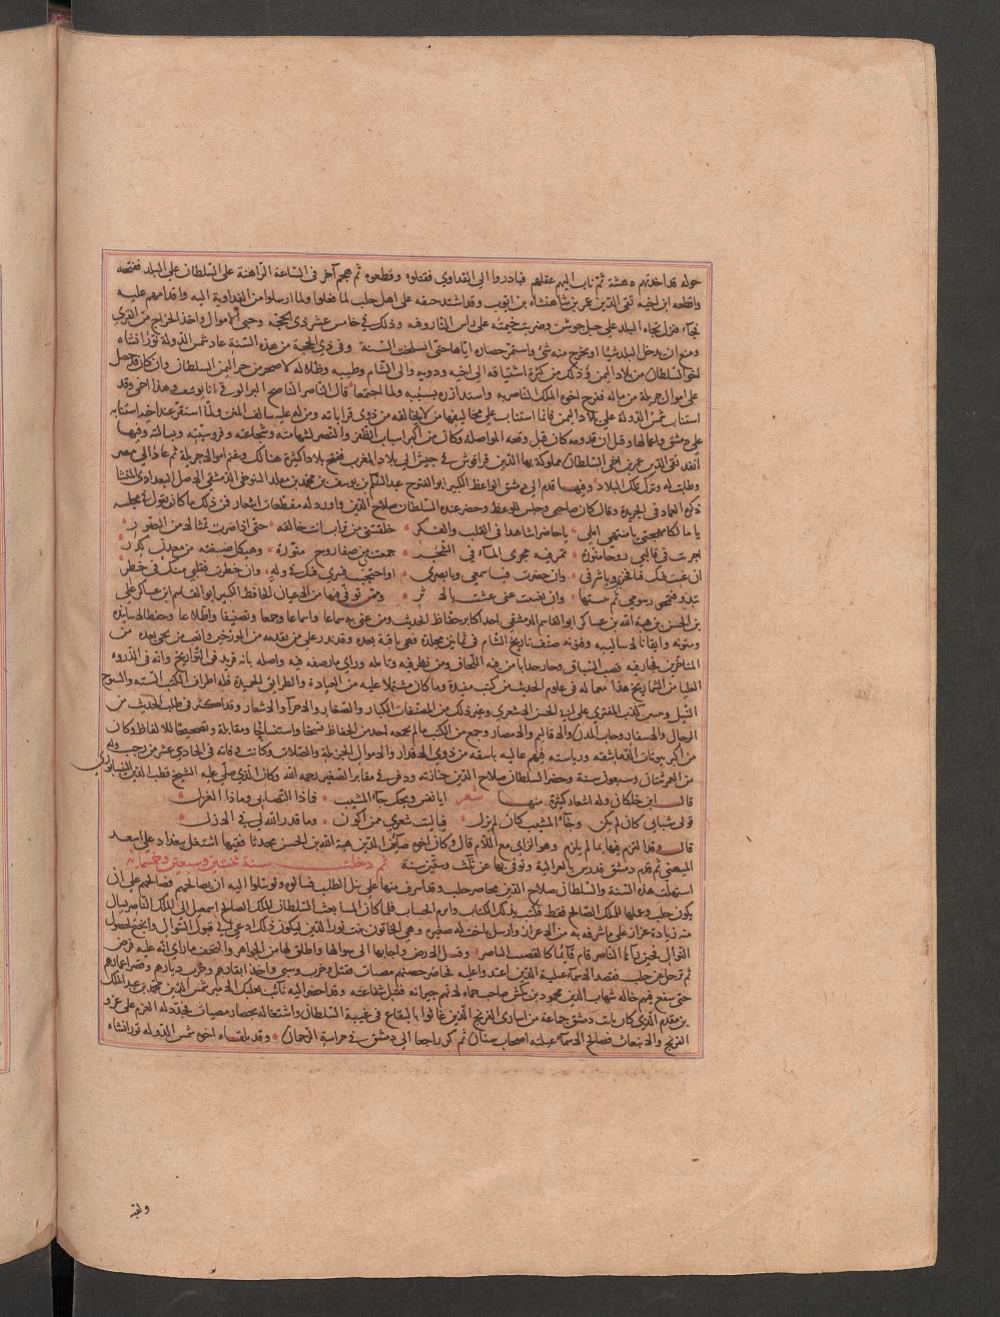 حوله قد اخذتهم دهشة ثم ثاب اليهم عقلهم فبادروا الى الفداوي فقتلوه وقطعوه ثم هجم آخر في الساعة الراهنة على السلطان على البلد ففتحه
واقطعه ابن اخيه تقي الدين عمر بن شاهنشاه بن ايوب وقد اشتد حنقه على اهل حلب لما فعلوا ولما ارسلوا من الفداوية اليه واقدامهم عليه
فجاء فنزل تجاه البلد على جبل جوشن وضربت خيمته على راس الباروقية وذلك في خامس عشر ذي الحجة وجبى الاموال واخذ الخراج من القرى
ومنع ان يدخل البلد شيئا او يخرج منه شيء واستمر حصاره اياها حتى انسلخت السنة وفي ذي الحجة من هذه السنة عاد شمس الدولة تورانشاه
اخو السلطان من بلاد اليمن وذلك من كثرة اشتياقه الى اخيه وذويه والى الشام وطيبه وظلاله لا ضجر من حر اليمن السلطان وان كان قد حصل
على اموال جزيلة من ماله ففرح اخوه الملك الناصر به واشتد ازره بسببه ولما اجتمعا قال الناصر الناصح البر الوفي انا يوسف وهذا اخي وقد
استناب شمس الدولة على بلاد اليمن فانما استناب على مخاليفها من لا يخالفه من ذوي قراباته ومن له عليه سالف المنن ولما استقر عند اخيه استنابه
على دمشق واعمالها وقيل ان قدومه كان قبل وقعة المواصلة وكان من اكبر اسباب الظفر والنصر لشهامته وشجاعته وفروسيته وبسالته وفيها
انفذ تقي الدين عمر بن اخي السلطان مملوكه بها الدين قراقوش في جيش الى بلاد المغرب ففتح بلادا كثيرة هنالك وغنم اموالا جزيلة ثم عاد الى مصر
وطابت له وترك تلك البلاد وفيها قدم الى دمشق الواعظ الكبير ابو الفتوح عبد السلام بن يوسف بن محمد بن مقلد التنوخي الدمشقي الاصل البغدادي المنشا
ذكره العماد في الجريدة وقال كان صاحبي وجلس للوعظ وحضر عنده السلطان صلاح الدين واورد له مقطعات اشعار فمن ذلك ما كان يقول في مجلسه
يا مالكا مهجتي يا منتهى املي يا حاضرا شاهدا في القلب والفكر خلقتني من تراب انت خالقه حتى اذا صرت تمثالا من الصور
اجريت في قالبي روحا منورة تمر فيه مجرى الماء في الشجر جمعت بين صفا روح منورة وهيكل صغته من معدن كدر
ان غبت فيك فيا فخري ويا شرفي وان حضرت فيا سمعي ويا بصري او احتجبت فسري فيك في وله وان خطرت فقلبي منك في خطر
تبدو فتمحي رسومي ثم تثبتها وان تغيبت عني عشت بالاثر وممن توفي فيها من الاعيان الحافظ الكبير ابو القاسم ابن عساكر علي
بن الحسن بن هبة الله بن عساكر ابو القاسم الدمشقي احد اكابر حفاظ الحديث ومن عني به سماعا واسماعا وجمعا وتصنيفا واطلاعا وحفظا لاسانيده
ومتونه واتقانا لاساليبه وفنونه صنف تاريخ الشام في ثمانين مجلدة فهي باقية بعده وقد ندر على من تقدمه من المورخين واتعب من يجي بعده من
المتاخرين فحاز فيه قصب السباق وحاز حدا يامن فيه اللحاق ومن نظر فيه وتامله وراى ما وصفه فيه واصله بانه فريد في التواريخ وانه في الذروه
العليا من الشماريخ هذا مع ما له في علوم الحديث من كتب مفيدة وما كان مشتملا عليه من العبادة والطرايق الحميدة فله اطراف الكتب الستة والشيوخ
النبل وتبيين كذب المفتري على ابي الحسن الاشعري وغير ذلك من المصنفات الكبار والصغار والاجزاء والاسفار وقد اكثر في طلب الحديث من
الترحال والاسفار وجاب المدن والاقاليم والامصار وجمع من الكتب ما لم يجمعه احد من الحفاظ نسخا واستنساخا ومقابلة وتصحيحا للالفاظ وكان
من اكبر بيوتات الدماشقة ورياسته فيهم عالية باسقه من ذوي الاقدار والاموال الجزيلة والصلات وكانت وفاته في الحادي عشر من رجب وله
من العمر ثنتان وسبعون سنة وحضر السلطان صلاح الدين جنازته ودفن في مقابر الصغير رحمه الله وكان الذي صلى عليه الشيخ قطب الدين النيسابوري
قال ابن خلكان وله اشعار كثيرة منها شعر ايا نفس ويحك جاء المشيب فماذا التصابي وماذا الغزل
تولى شبابي كان لم يكن وجاء المشيب كان لم يزل فياليت شعري ممن اكون وما قدر الله لي في الازل
قال وقد التزم فيها بما لم يلزم وهو الزاي مع اللام قال وكان اخوه صاين الدين هبة الله بن الحسن محدثا فقيها اشتغل ببغداد على اسعد
الميهني ثم قدم دمشق فدرس بالغزالية وتوفي بها عن ثلث وستين سنة ثم دخلت سنة ثنتين وسبعين وخمسمايه
استهلت هذه السنة والسلطان صلاح الدين محاصر حلب وقد اشرف منها على نيل الطلب فسالوه وتوسلوا اليه ان يصالحهم فصالحهم على ان
يكون حلب وعملها للملك الصالح فقط فكتب بذلك الكتاب وابرم الحساب فلما كان المسا بعث السلطان الملك الصالح اسمعيل الى الملك الناصر يسال
منه زيادة عزاز على ما شرفه به من الاعزاز وارسل باخت له صغيرة وهي الخاتون بنت نور الدين ليكون ذلك ادعى له في قبول السؤال وانجح لحصول
النوال فحين رآها الناصر قام قائما كالقضيب الناضر وقبل الارض واجابها الى سوالها واطلق لها من الجواهر والتحف ما راى انه عليه فرض
ثم ترحل عن حلب فقصد الاسماعيلية الذين اعتدوا عليه فحاصر حصنهم مصيات فقتل وخرب وسبى واخذ ابقارهم وخرب ديارهم وقصر اعمارهم
حتى شفع فيهم خاله شهاب الدين محمود بن تكش صاحب حماه لانهم جيرانه فقبل شفاعته وقد احضر اليه نائب بعلبك الامير شمس الدين محمد بن عبد الملك
بن مقدم الذي كان نائب دمشق جماعة من اسارى الفرنج الذين عاثوا بالبقاع في غيبة السلطان واشتغاله بحصار مصيات فجدد له العزم على غزو
الفرنج والانبعاث فصالح الاسماعيلية اصحاب سنان ثم كر راجعا الى دمشق في حراسة الرحمان وقد تلقاه اخوه شمس الدوله تورانشاه